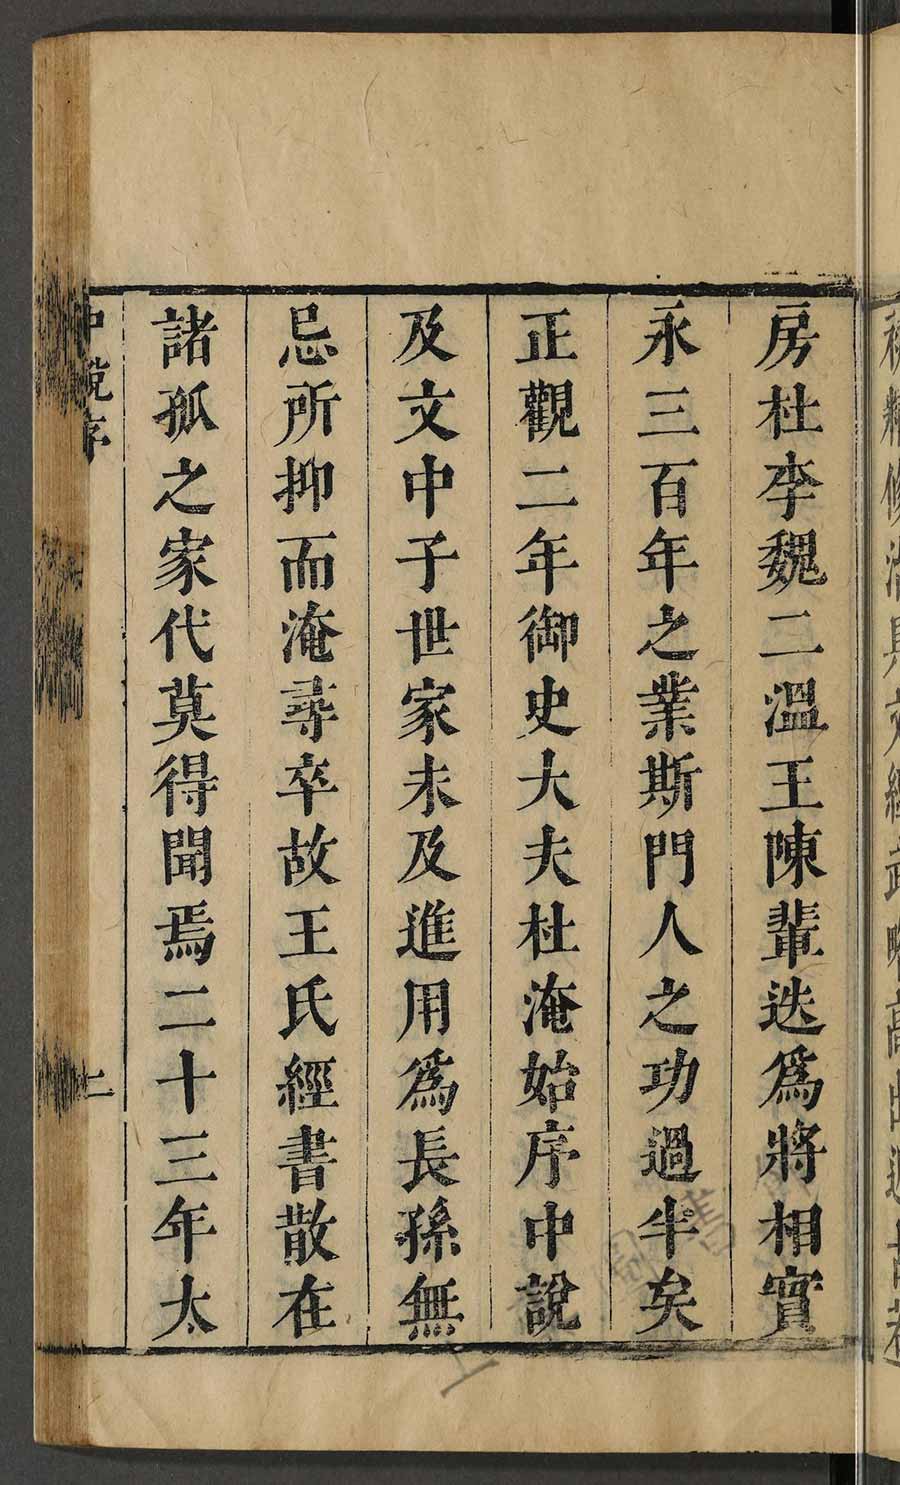 房杜李魏二溫王陳輩迭爲將相實
永三百年之業斯門人之功過半矣
正觀二年御史大夫杜淹始序中說
及文中子世家未及進用爲長孫無
忌所抑而淹尋卒故王氏經書散在
諸孤之家代莫得聞焉二十三年太
中說序
二